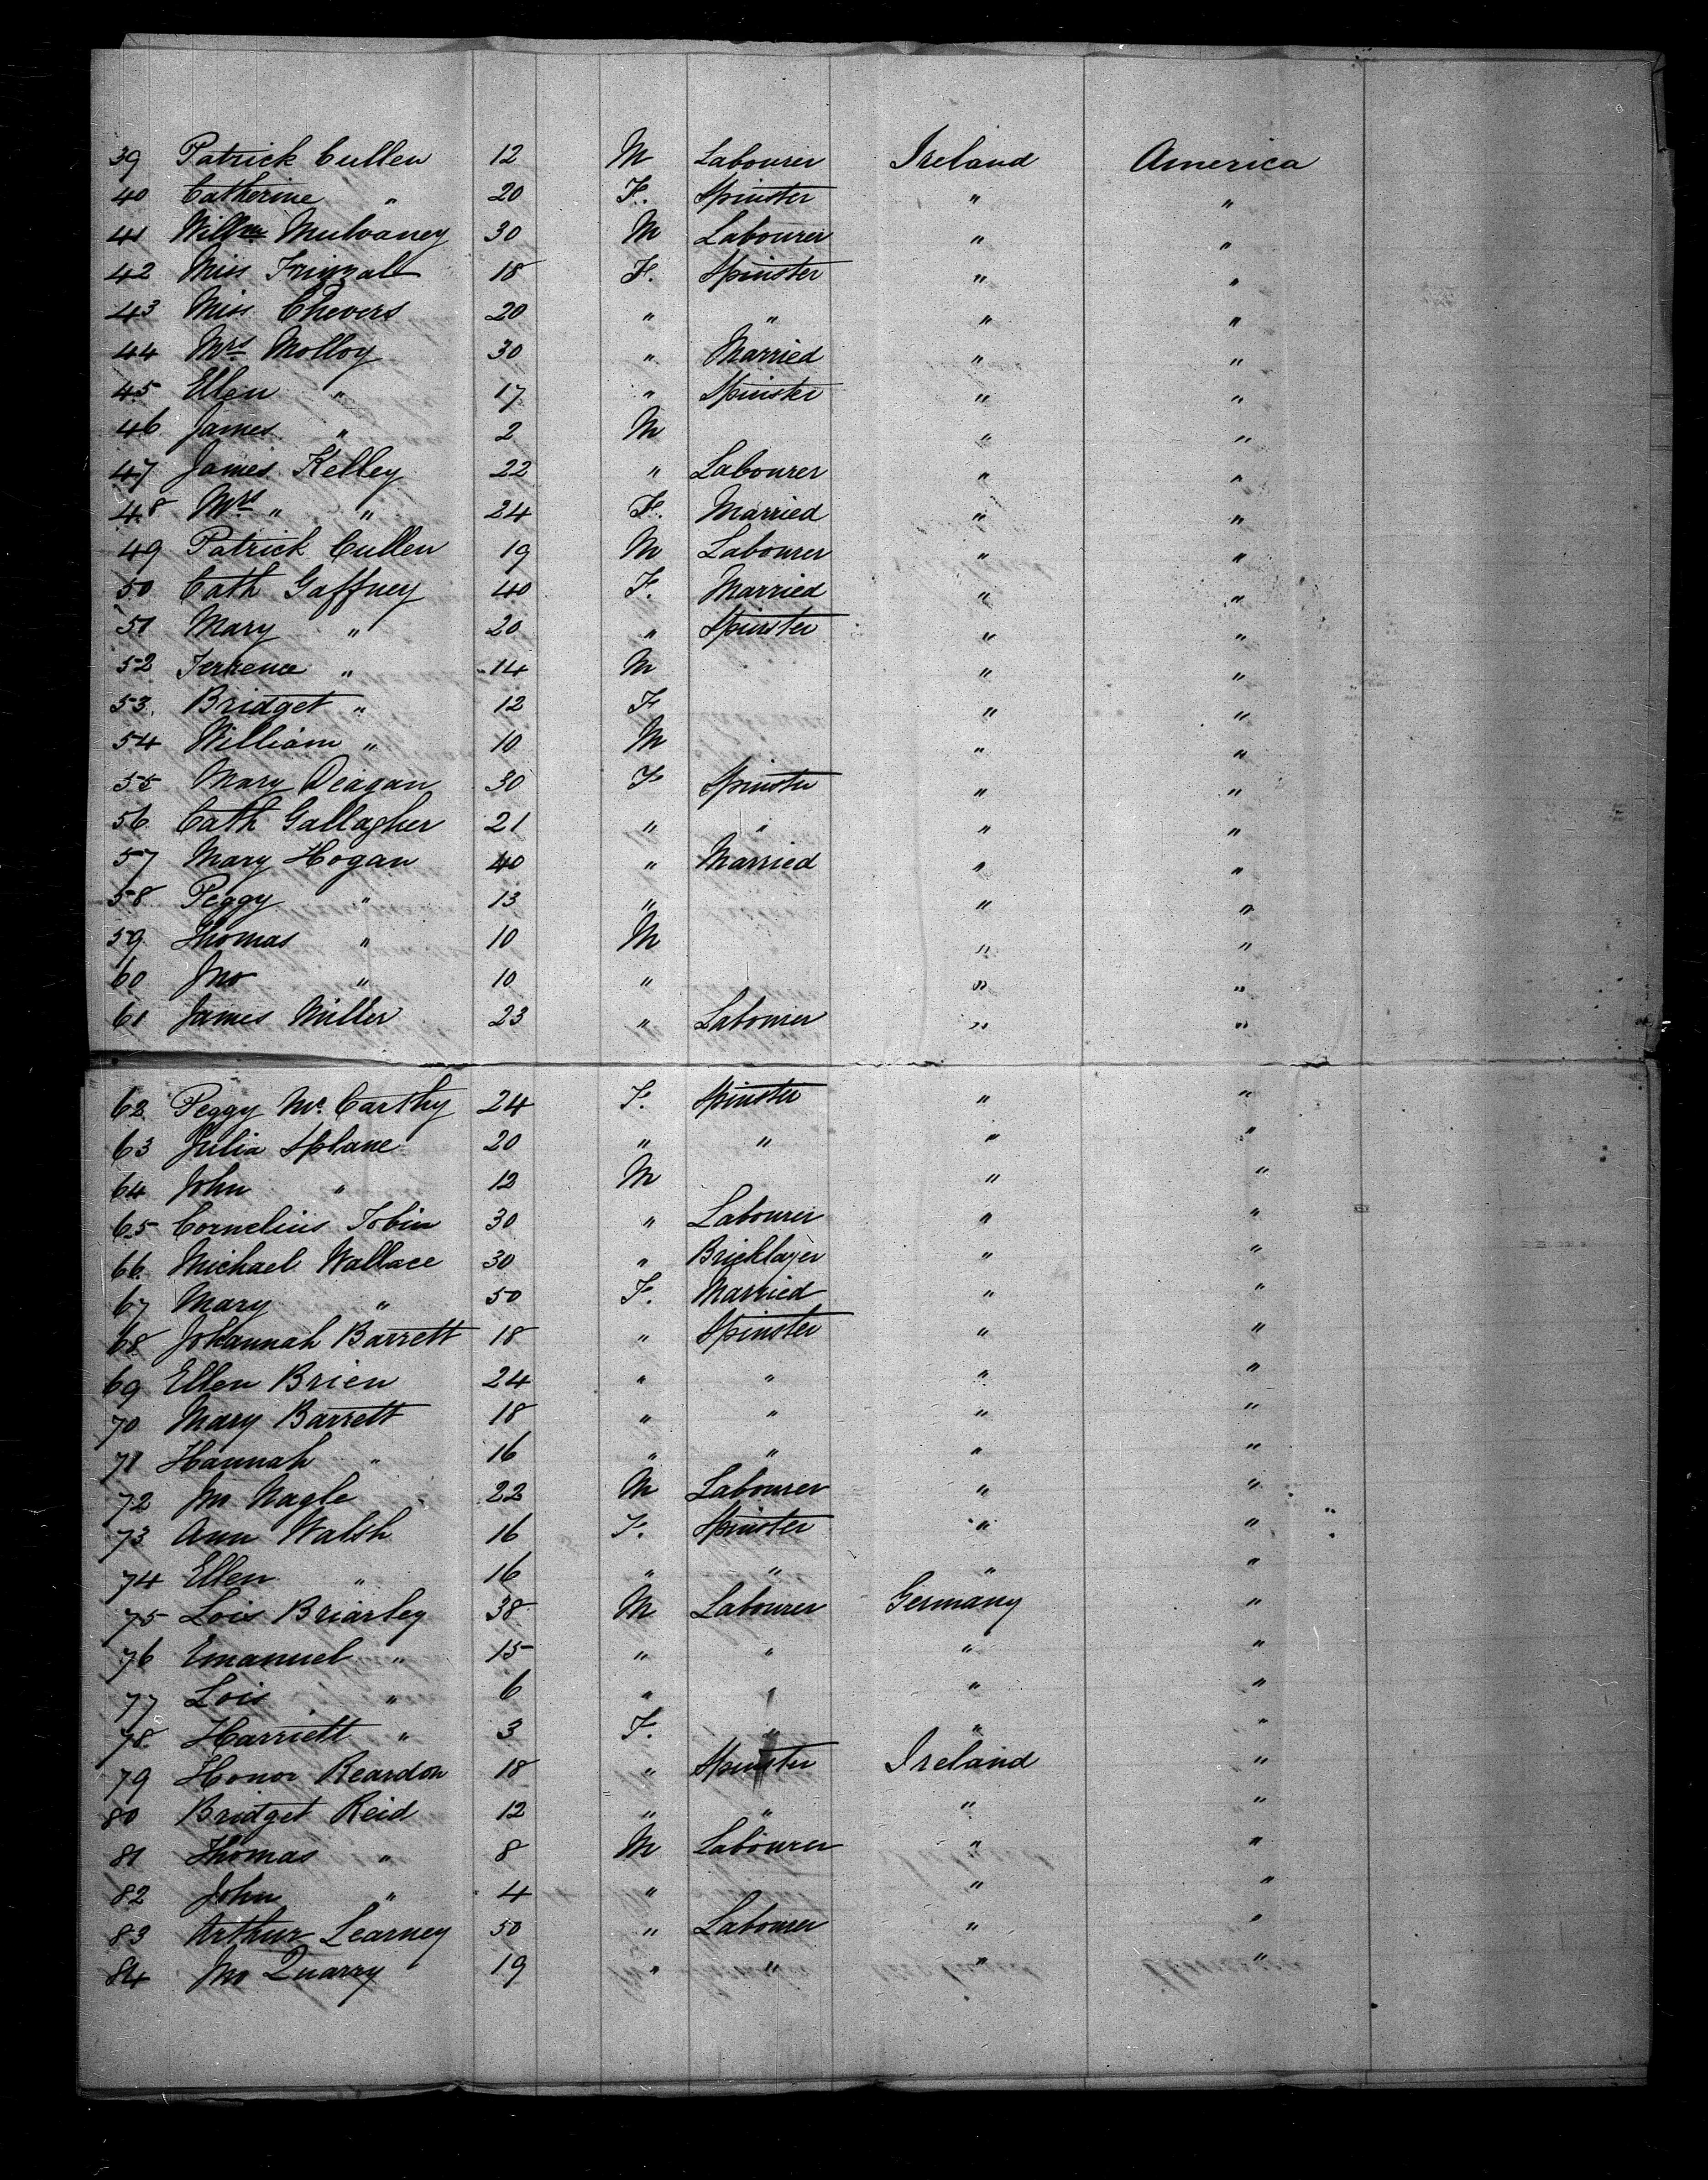 39 Patrick Cullen 12 M Labourer Ireland America
40 Catherine " 20 F. Spinster " "
41 Willm Mulvaney 30 M Labourer " "
42 Miss 18 F. Spinster " "
43 Miss Chevers 20 " " " "
44 Mrs Molloy 30 " Married " "
45 Ellen " 17 " Spinster " "
46 James " 2 M " "
47 James Kelley 22 " Labourer " "
48 Mrs " " 24 F. Married " "
49 Patrick Cullen 19 M Labourer " "
50 Cath Gaffney 40 F. Married " "
51 Mary " 20 " Spinster " "
52 Terrence " 14 M " "
53 Bridget " 12 F " "
54 William " 10 M " "
55 Mary Deagan 30 F Spinster " "
56 Cath Gallagher 21 " " " "
57 Mary Hogan 40 " Married " "
58 Peggy " 13 " " "
59 Thomas " 10 M " "
60 Jno " 10 " " "
61 James Miller 23 " Labourer " "
62 Peggy Mc Carthy 24 F. Spinster " "
63 Julia Splane 20 " " " "
64 John " 12 M " "
65 Cornelius Tobin 30 " Labourer " "
66 Michael Wallace 30 " Bricklayer " "
67 Mary " 50 F. Married " "
68 Johannah Barrett 18 " Spinster " "
69 Ellen Brien 24 " " " "
70 Mary Barrett 18 " " " "
71 Hannah " 16 " " " "
72 Jno Nagle 22 M Labourer " "
73 Ann Walsh 16 F. Spinster " "
74 Ellen " 16 " " " "
75 Lois Briarley 38 M Labourer Germany "
76 Emanuel " 15 " " " "
77 Lois " 6 " " " "
78 Harriett " 3 F. " " "
79 Honor Reardon 18 " Spinster Ireland "
80 Bridget Reid 12 " " " "
81 Thomas " 8 M Labourer " "
82 John " 4 " " "
83 Arthur Learney 50 " Labourer " "
84 Jno Quarry 19 " " " "